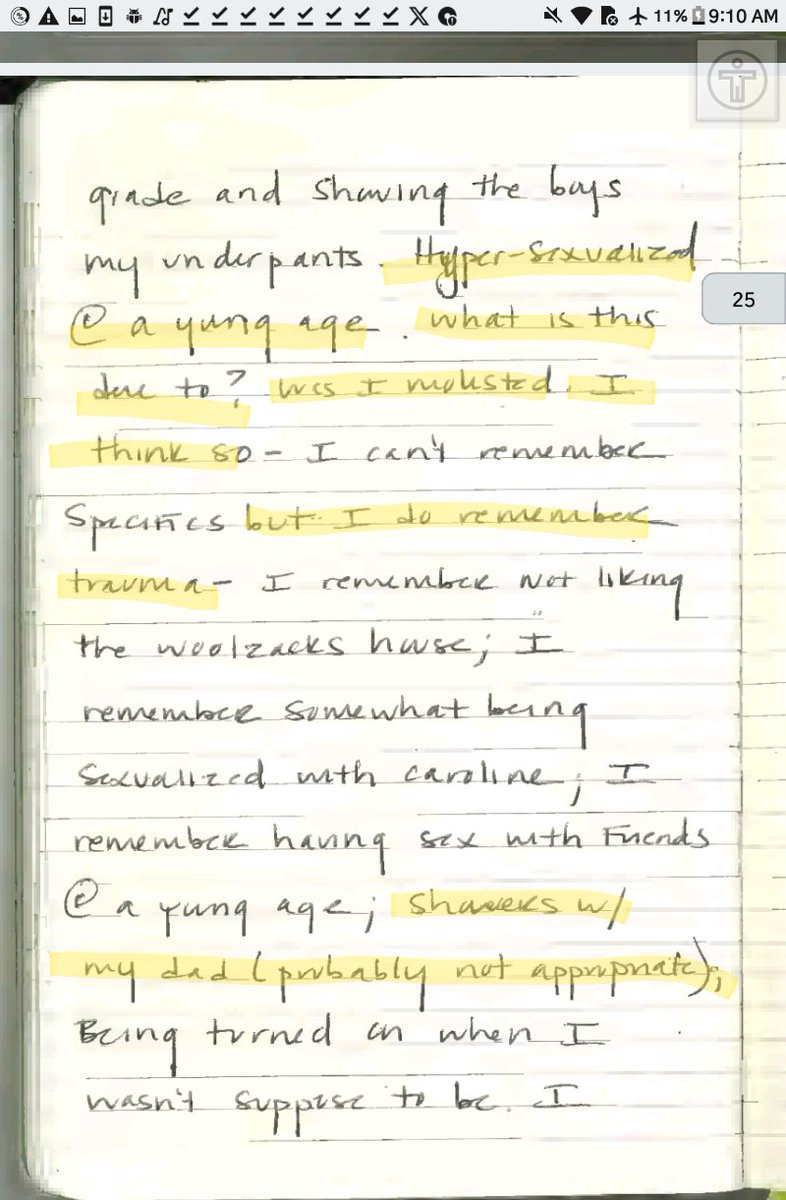 11% 9:10 AM
grade and showing the boys
my underpants. Hyper-sexualized
@ a yung age. what is this
25
due to? Was I molested. I
think so - I can't remember
specifics but I do remember
trauma - I remember not liking
the woolzacks house; I
remember somewhat being
sexualized with caroline; I
remember having sex with Friends
@ a yung age; showers w/
my dad (probably not appropriate);
Being turned on when I
wasn't suppose to be. I